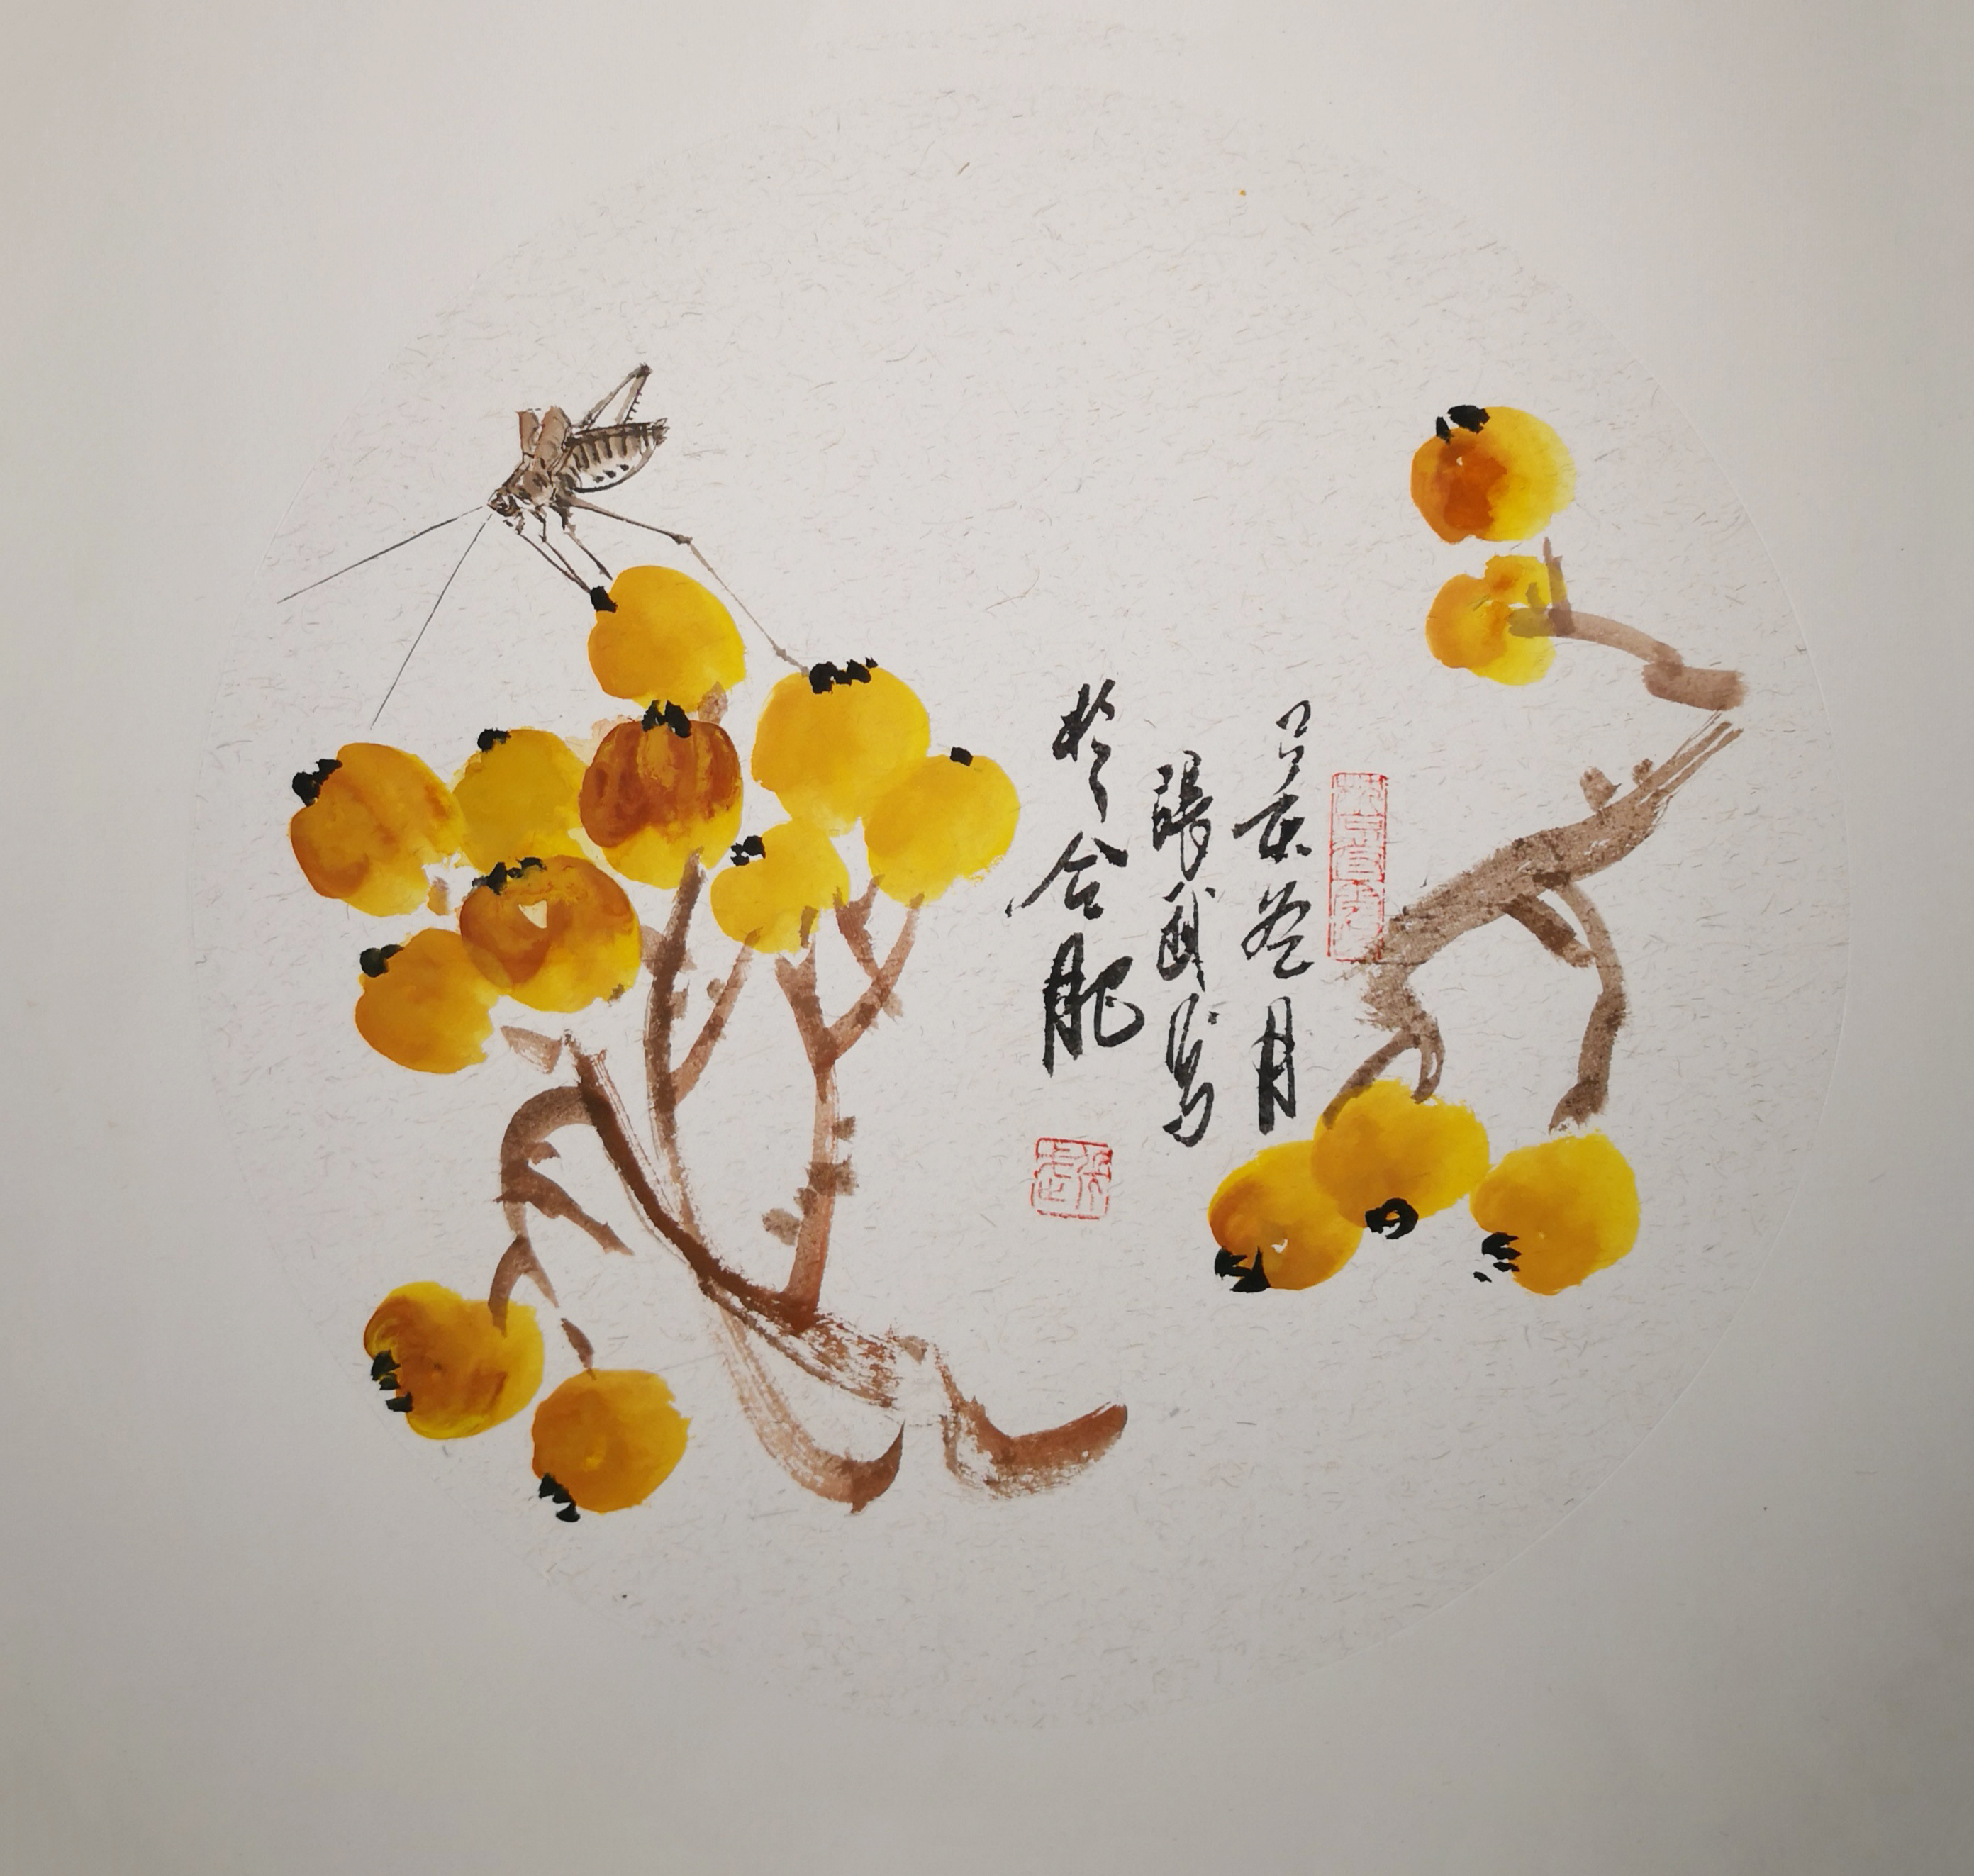 己亥冬月
張写
於合肥